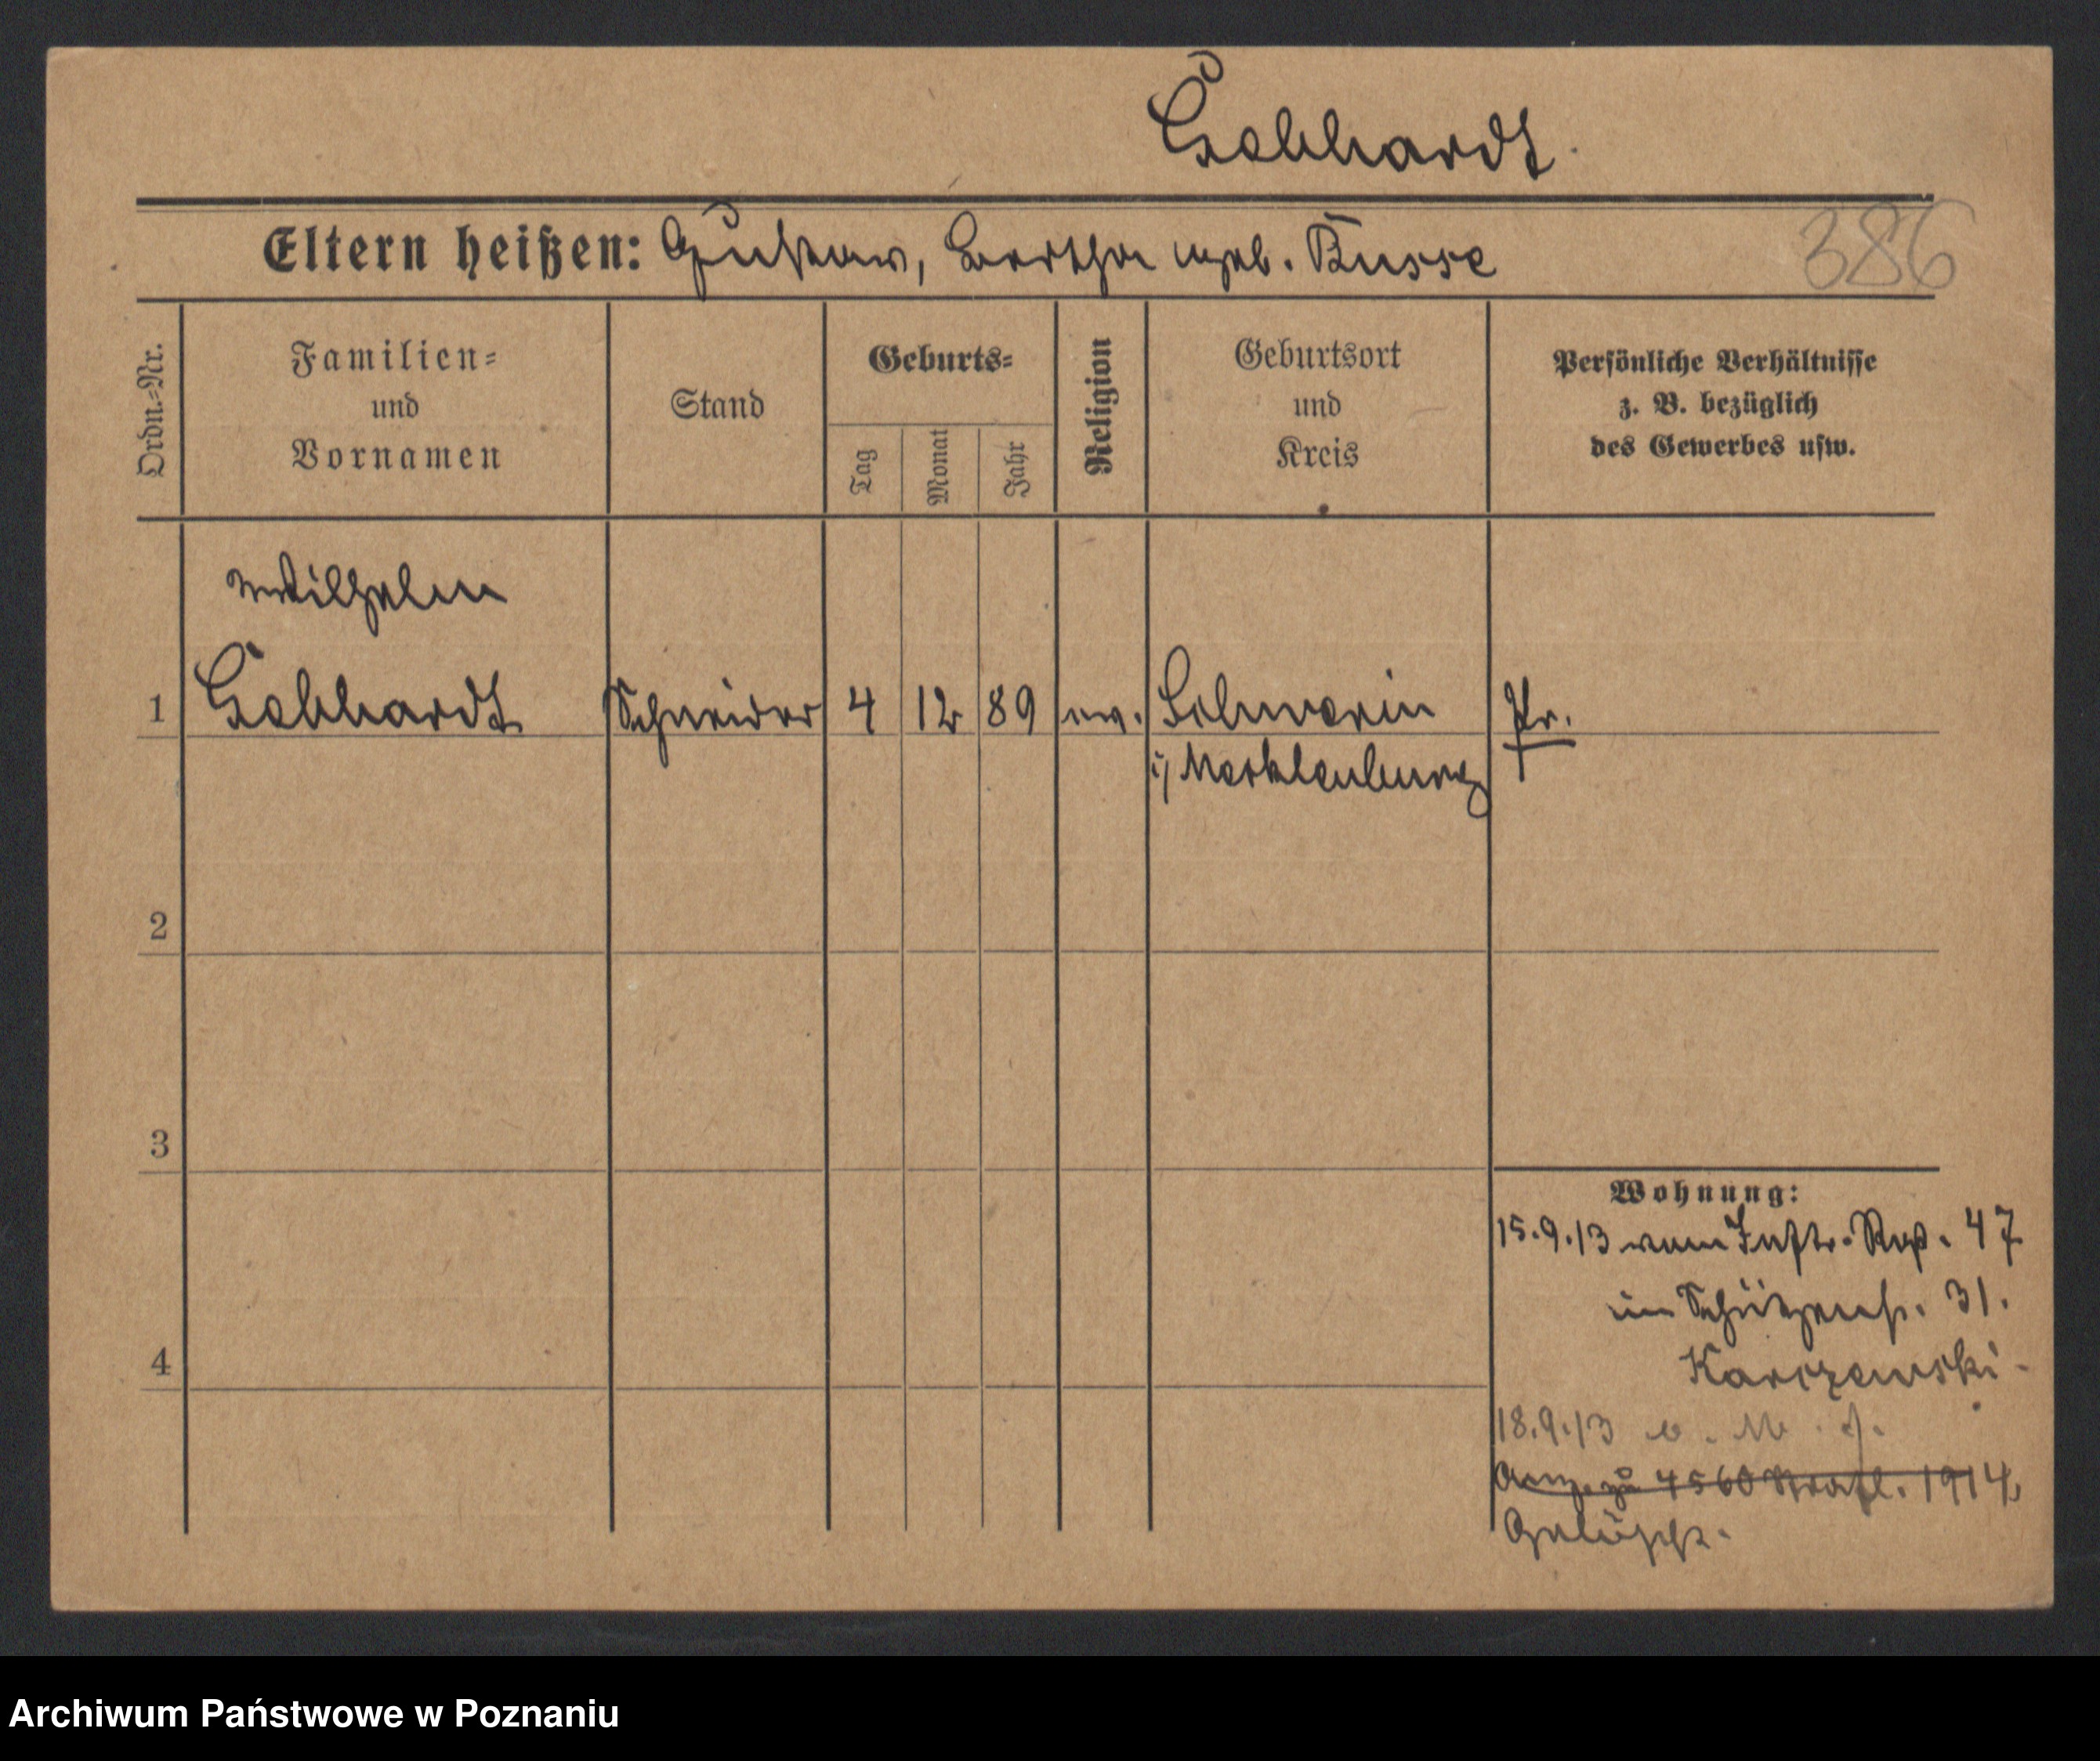 Gebhardt.
Eltern heißen: Gustav, Bertha geb. Busse
386
Ordn.-Nr.
Familien-
und
Vornamen
Stand
Geburts-
Tag
Monat
Jahr
Religion
Geburtsort
und
Kreis
Persönliche Verhältnisse
z. B. bezüglich
des Gewerbes usw.
Wilhelm
1 Gebhardt Schneider 4 12 89 ev. Schwerin Pr.
i/ Mecklenburg
2
3
Wohnung:
15.9.13 vom Inftr. Rgt. 47
in Schützenstr. 31.
4
Karczewski
18.9.13
Anz. zu 4560 Strafl. 1914
Gelöscht.
Archiwum Państwowe w Poznaniu